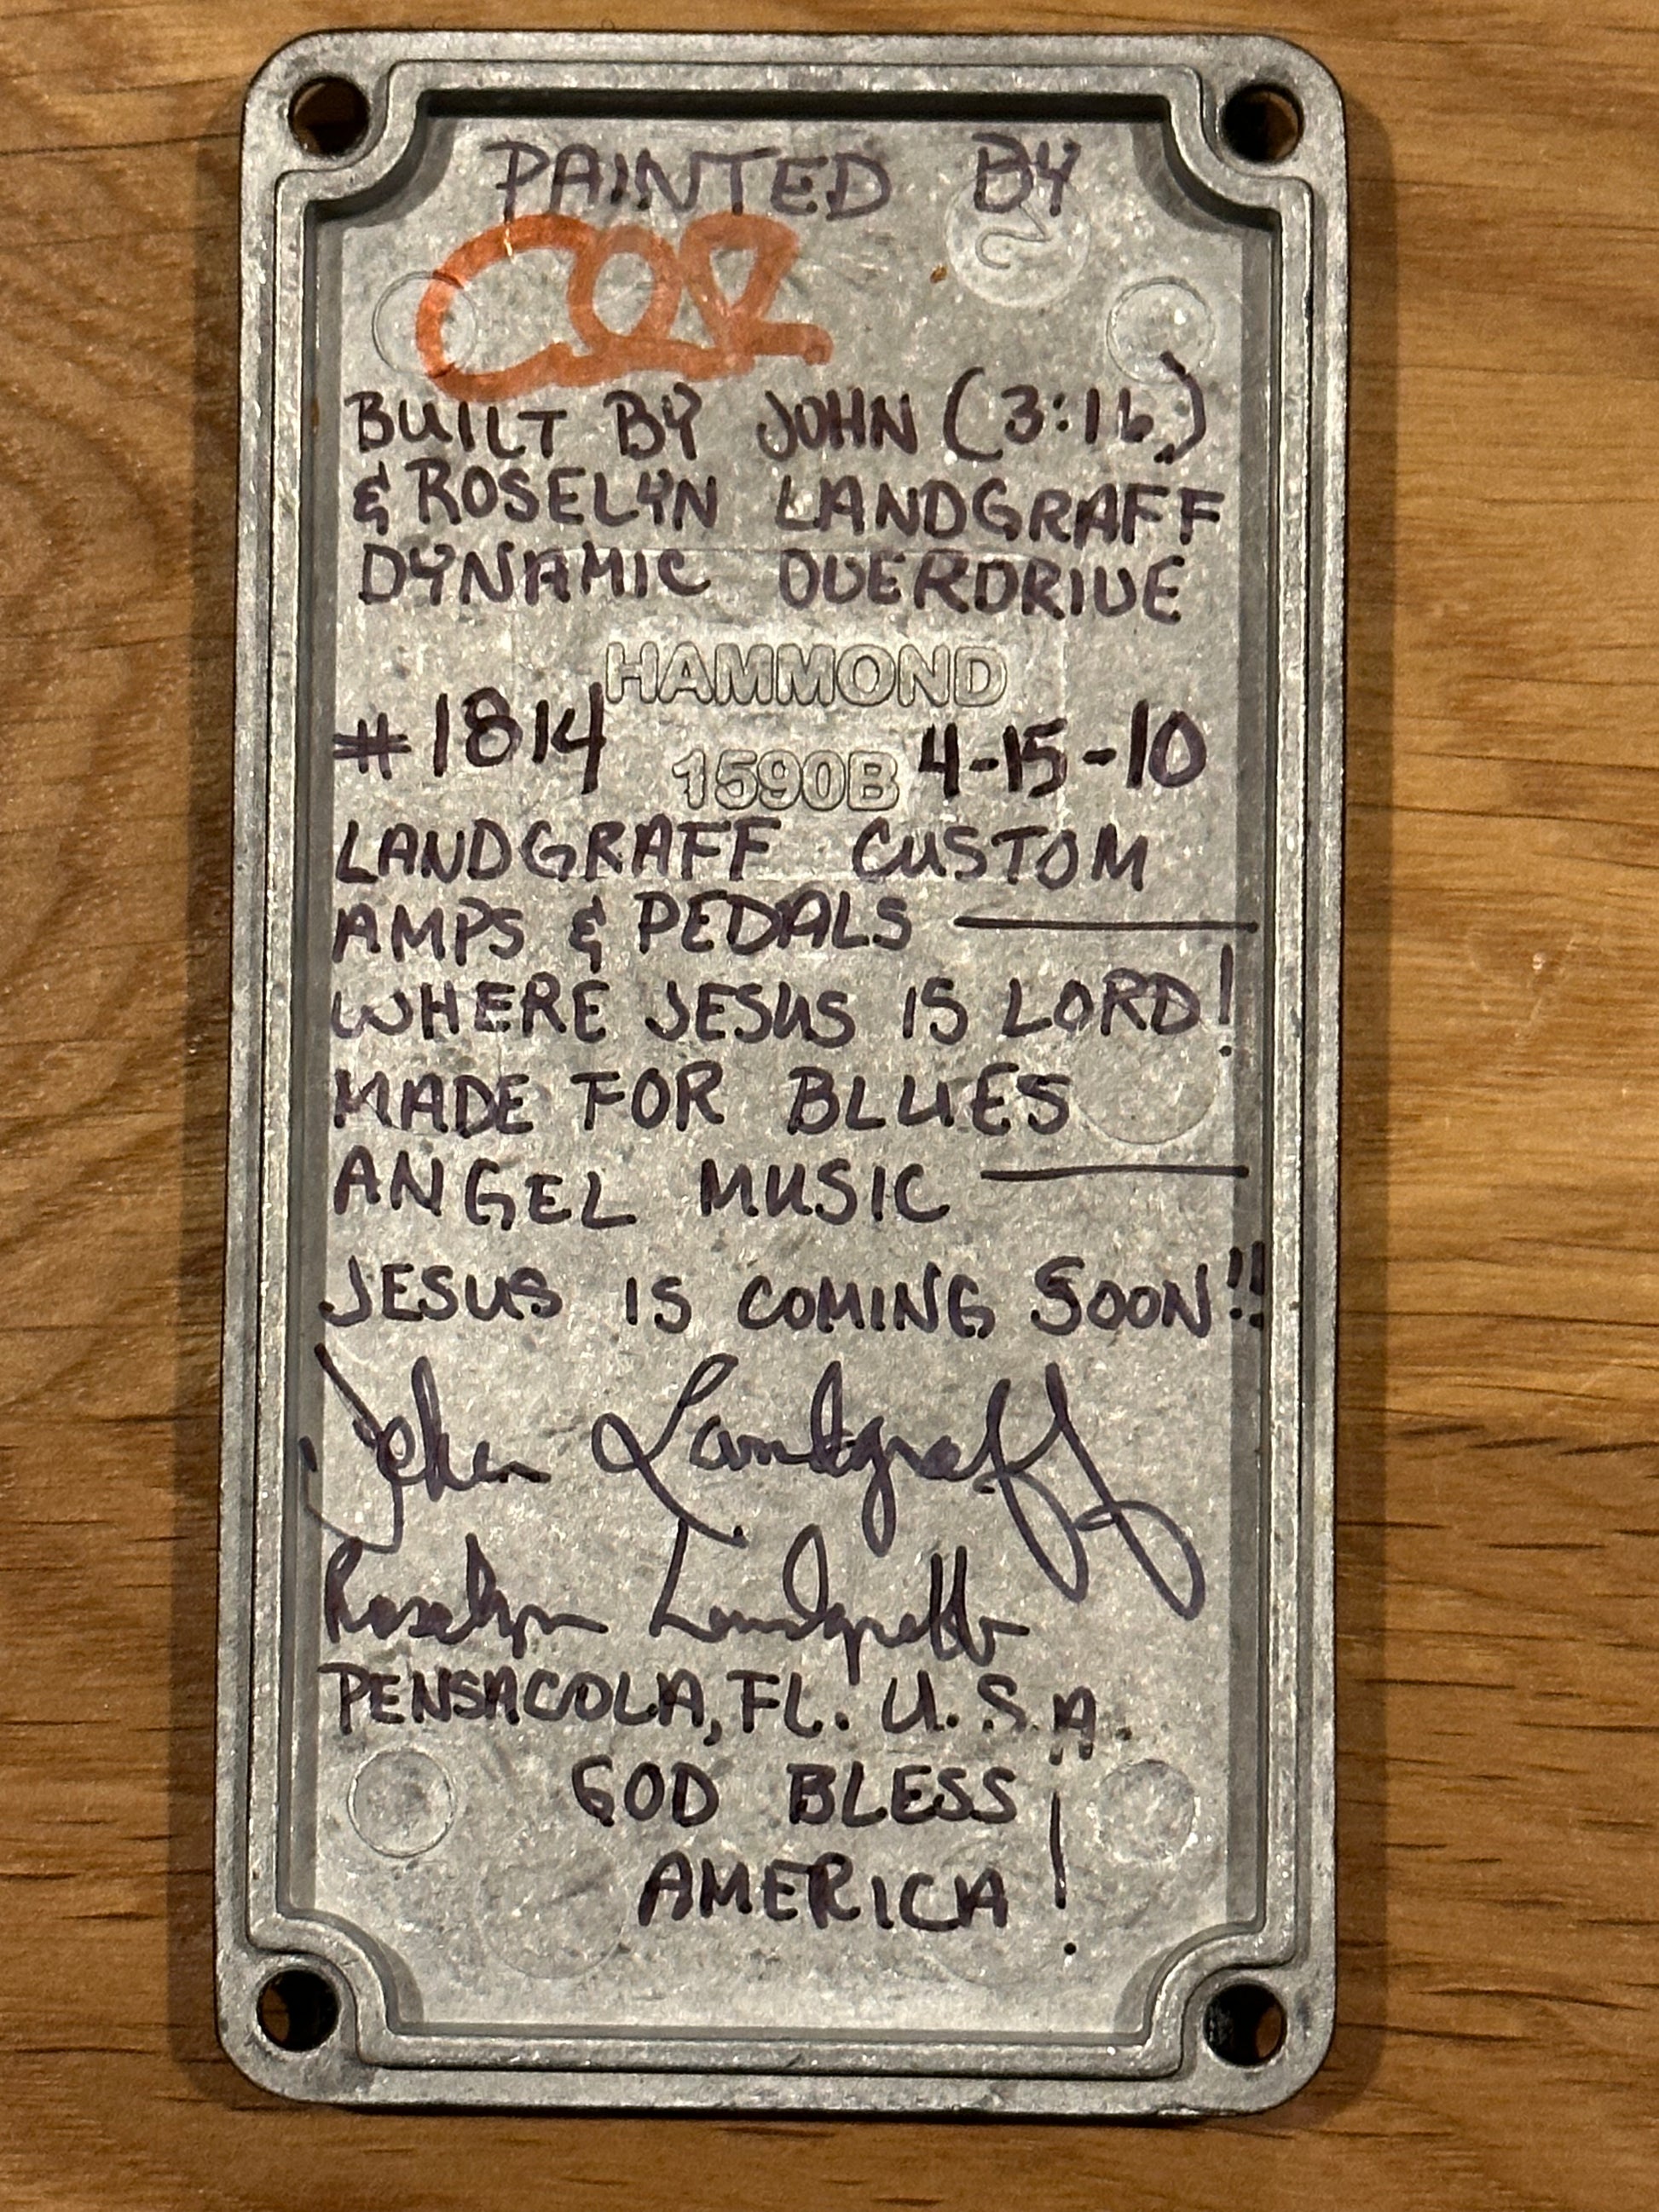 PAINTED BY
2
BUILT BY JOHN (3:16)
& ROSELYN LANDGRAFF
DYNAMIC OVERDRIVE
HAMMOND
#1814 4-15-10
1590B
LANDGRAFF CUSTOM
AMPS & PEDALS
WHERE JESUS IS LORD!
MADE FOR BLUES
ANGEL MUSIC
JESUS IS COMING SOON!!
John Landgraff
Roselyn Landgraff
PENSACOLA, FL. U.S.A.
GOD BLESS
AMERICA!